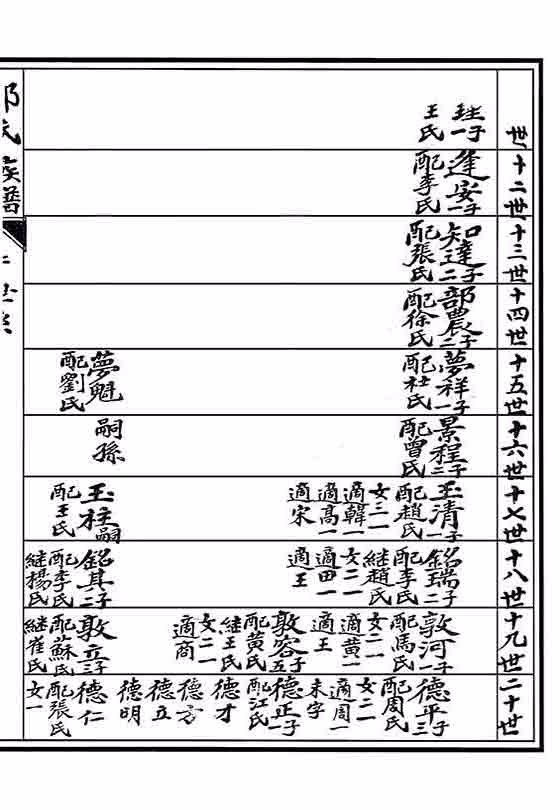 世
珄一子
王氏
十二世
逢安一子
配李氏
十三世
知達二子
配張氏
十四世
部農二子
配徐氏
十五世
夢祥一子
配杜氏
夢魁
配劉氏
十六世
景程二子
配曾氏
嗣孫
十七世
玉清一子
配趙氏
女三一
適韓一
適高一
適宋
玉柱嗣
配王氏
十八世
銘瑞二子
配李氏
継趙氏
女二一
適田一
適王
銘其二子
配李氏
継楊氏
十九世
敦河一子
配馬氏
女二一
適黄一
適王
敦容五子
配黄氏
継王氏
女二一
適商
敦立三子
配蘇氏
継崔氏
二十世
德平三子
配周氏
女二一
適周一
未字
德正一子
配江氏
德才
德方
德立
德明
德仁
配張氏
女一
氏族譜